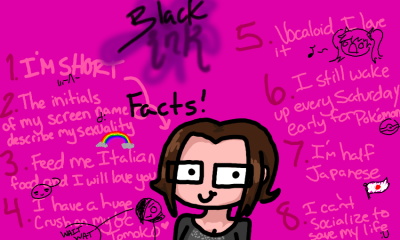 Black
ink
Facts!
1. I'm SHORT
2. The initials
of my screen name
describe my sexuality
3. Feed me Italian
food and I will love you
4. I have a huge
crush on my OC
Tomoko
WAIT WAT
5. Vocaloid I love
it
6. I still wake
up every Saturday
early for Pokemon
7. I'm half
Japanese
8 I can't
socialize to
save my life